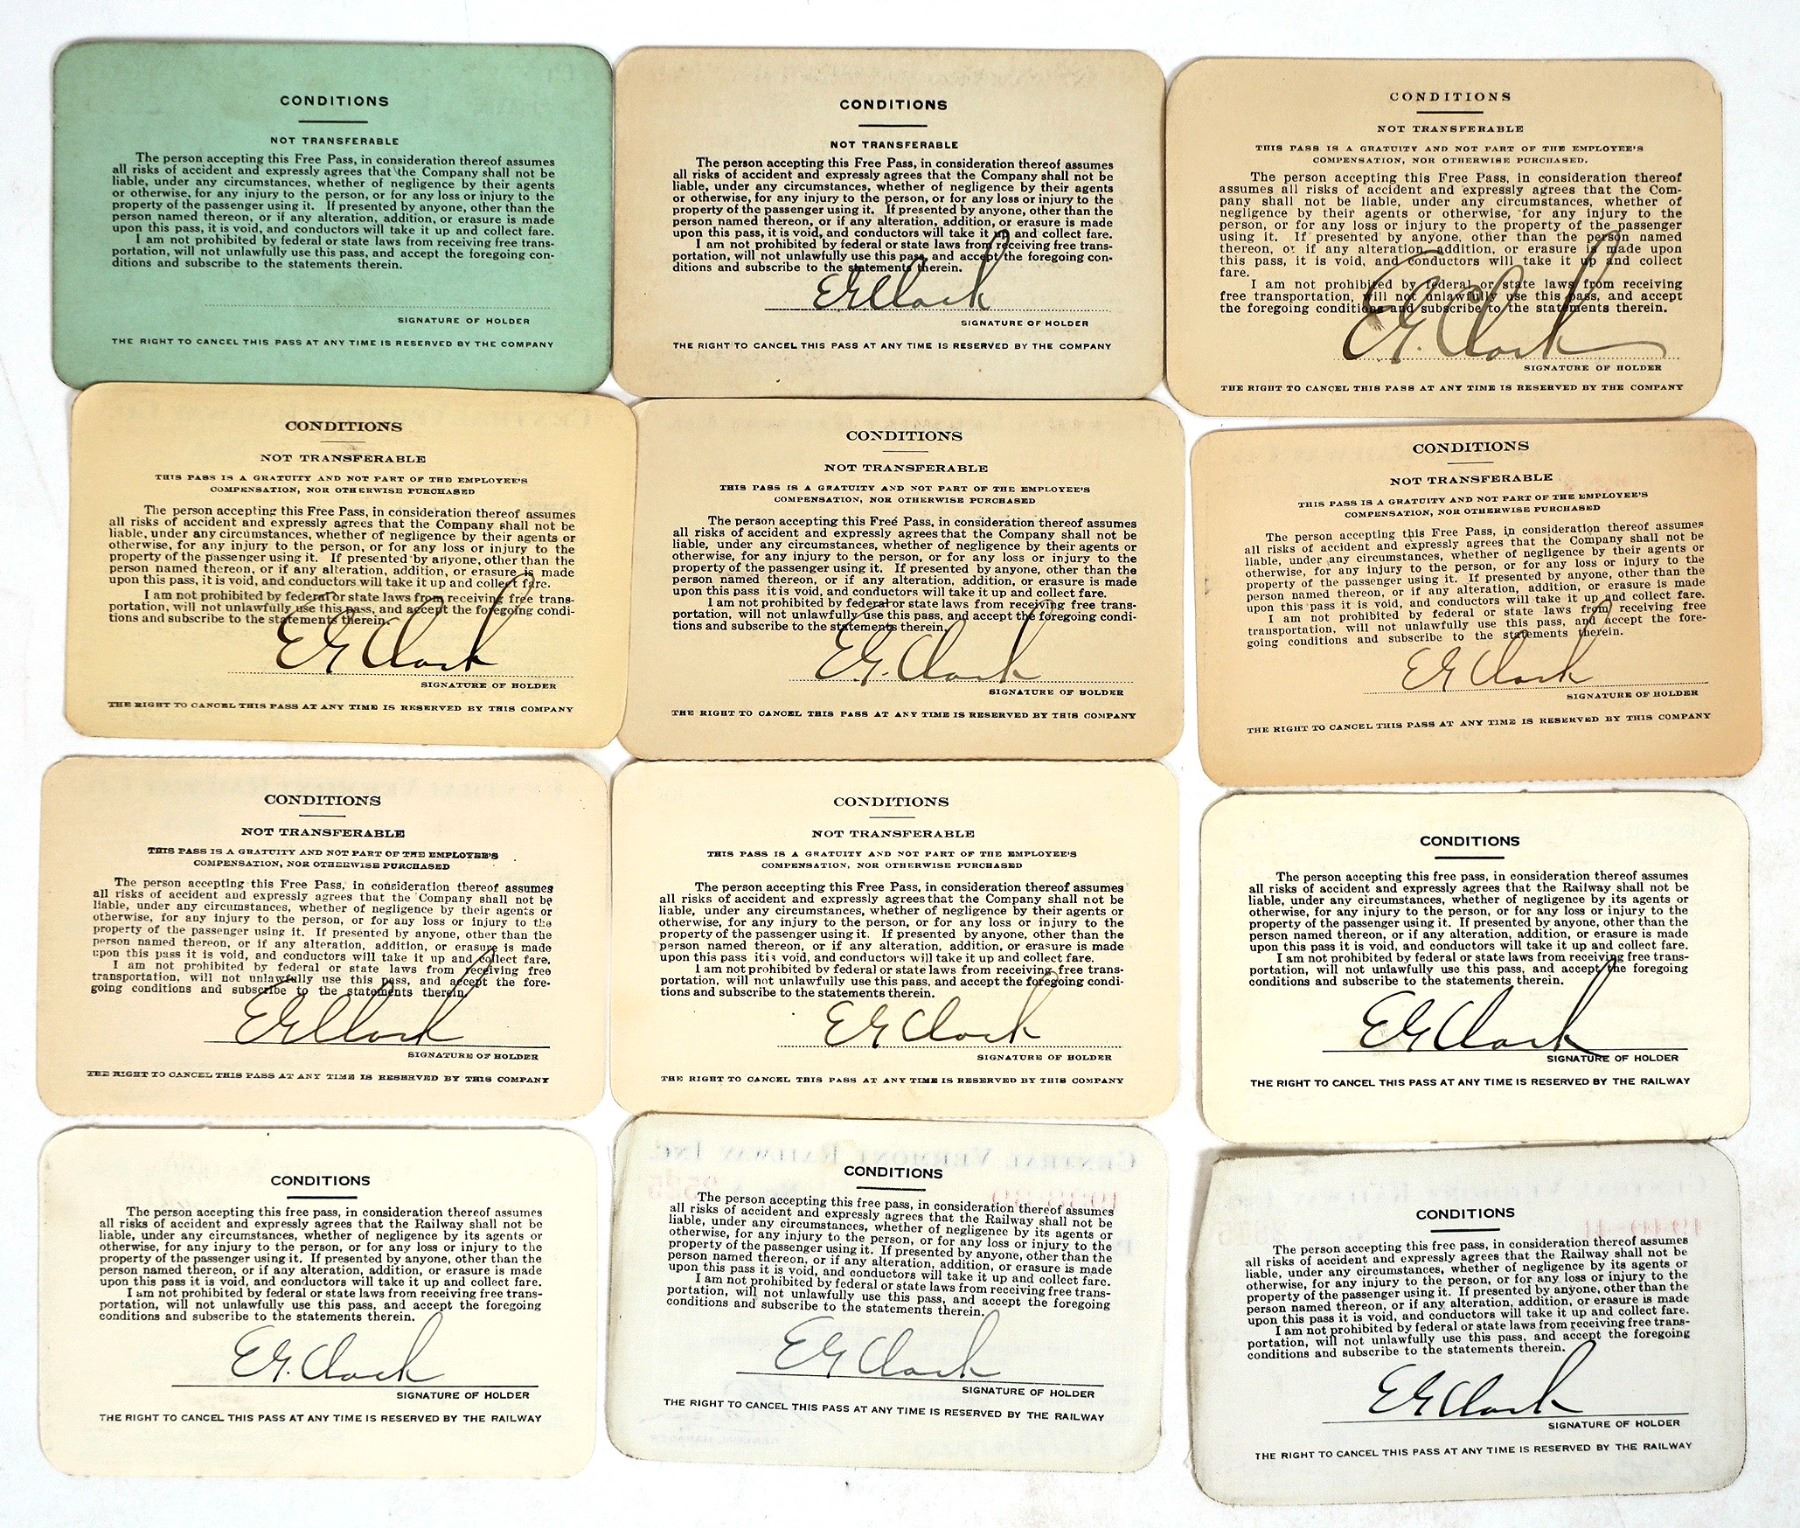 CONDITIONS
NOT TRANSFERABLE
The person accepting this Free Pass, in consideration thereof assumes
all risks of accident and expressly agrees that the Company shall not be
liable, under any circumstances, whether of negligence by their agents
or otherwise, for any injury to the person, or for any loss or injury to the
property of the passenger using it. If presented by anyone, other than the
person named thereon, or if any alteration, addition, or erasure is made
upon this pass, it is void, and conductors will take it up and collect fare.
I am not prohibited by federal or state laws from receiving free trans-
portation, will not unlawfully use this pass, and accept the foregoing con-
ditions and subscribe to the statements therein.
SIGNATURE OF HOLDER
THE RIGHT TO CANCEL THIS PASS AT ANY TIME IS RESERVED BY THE COMPANY
CONDITIONS
NOT TRANSFERABLE
The person accepting this Free Pass, in consideration thereof assumes
all risks of accident and expressly agrees that the Company shall not be
liable, under any circumstances, whether of negligence by their agents
or otherwise, for any injury to the person, or for any loss or injury to the
property of the passenger using it. If presented by anyone, other than the
person named thereon, or if any alteration, addition, or erasure is made
upon this pass, it is void, and conductors will take it up and collect fare.
I am not prohibited by federal or state laws from receiving free trans-
portation, will not unlawfully use this pass, and accept the foregoing con-
ditions and subscribe to the statements therein.
EGClark
SIGNATURE OF HOLDER
THE RIGHT TO CANCEL THIS PASS AT ANY TIME IS RESERVED BY THE COMPANY
CONDITIONS
NOT TRANSFERABLE
THIS PASS IS A GRATUITY AND NOT PART OF THE EMPLOYEE'S
COMPENSATION, NOR OTHERWISE PURCHASED.
The person accepting this Free Pass, in consideration thereof
assumes all risks of accident and expressly agrees that the Com-
pany shall not be liable, under any circumstances, whether of
negligence by their agents or otherwise, for any injury to the
person, or for any loss or injury to the property of the passenger
using it. If presented by anyone, other than the person named
thereon, or if any alteration, addition, or erasure is made upon
this pass, it is void, and conductors will take it up and collect
fare.
I am not prohibited by federal or state laws from receiving
free transportation, will not unlawfully use this pass, and accept
the foregoing conditions and subscribe to the statements therein.
E.G. Clark
SIGNATURE OF HOLDER
THE RIGHT TO CANCEL THIS PASS AT ANY TIME IS RESERVED BY THE COMPANY
CONDITIONS
NOT TRANSFERABLE
THIS PASS IS A GRATUITY AND NOT PART OF THE EMPLOYEE'S
COMPENSATION, NOR OTHERWISE PURCHASED
The person accepting this Free Pass, in consideration thereof assumes
all risks of accident and expressly agrees that the Company shall not be
liable, under any circumstances, whether of negligence by their agents or
otherwise, for any injury to the person, or for any loss or injury to the
property of the passenger using it. If presented by anyone, other than the
person named thereon, or if any alteration, addition, or erasure is made
upon this pass, it is void, and conductors will take it up and collect fare.
I am not prohibited by federal or state laws from receiving free trans-
portation, will not unlawfully use this pass, and accept the foregoing condi-
tions and subscribe to the statements therein.
EG Clark
SIGNATURE OF HOLDER
THE RIGHT TO CANCEL THIS PASS AT ANY TIME IS RESERVED BY THIS COMPANY
CONDITIONS
NOT TRANSFERABLE
THIS PASS IS A GRATUITY AND NOT PART OF THE EMPLOYEE'S
COMPENSATION, NOR OTHERWISE PURCHASED
The person accepting this Free Pass, in consideration thereof assumes
all risks of accident and expressly agrees that the Company shall not be
liable, under any circumstances, whether of negligence by their agents or
otherwise, for any injury to the person, or for any loss or injury to the
property of the passenger using it. If presented by anyone, other than the
person named thereon, or if any alteration, addition, or erasure is made
upon this pass it is void, and conductors will take it up and collect fare.
I am not prohibited by federal or state laws from receiving free trans-
portation, will not unlawfully use this pass, and accept the foregoing condi-
tions and subscribe to the statements therein.
E.G. Clark
SIGNATURE OF HOLDER
THE RIGHT TO CANCEL THIS PASS AT ANY TIME IS RESERVED BY THIS COMPANY
CONDITIONS
NOT TRANSFERABLE
THIS PASS IS A GRATUITY AND NOT PART OF THE EMPLOYEE'S
COMPENSATION, NOR OTHERWISE PURCHASED
The person accepting this Free Pass, in consideration thereof assumes
all risks of accident and expressly agrees that the Company shall not be
liable, under any circumstances, whether of negligence by their agents or
otherwise, for any injury to the person, or for any loss or injury to the
property of the passenger using it. If presented by anyone, other than the
person named thereon, or if any alteration, addition, or erasure is made
upon this pass it is void, and conductors will take it up and collect fare.
I am not prohibited by federal or state laws from receiving free
transportation, will not unlawfully use this pass, and accept the fore-
going conditions and subscribe to the statements therein.
EG Clark
SIGNATURE OF HOLDER
THE RIGHT TO CANCEL THIS PASS AT ANY TIME IS RESERVED BY THIS COMPANY
CONDITIONS
NOT TRANSFERABLE
THIS PASS IS A GRATUITY AND NOT PART OF THE EMPLOYEE'S
COMPENSATION, NOR OTHERWISE PURCHASED
The person accepting this Free Pass, in consideration thereof assumes
all risks of accident and expressly agrees that the Company shall not be
liable, under any circumstances, whether of negligence by their agents or
otherwise, for any injury to the person, or for any loss or injury to the
property of the passenger using it. If presented by anyone, other than the
person named thereon, or if any alteration, addition, or erasure is made
upon this pass it is void, and conductors will take it up and collect fare.
I am not prohibited by federal or state laws from receiving free
transportation, will not unlawfully use this pass, and accept the fore-
going conditions and subscribe to the statements therein.
EGClark
SIGNATURE OF HOLDER
THE RIGHT TO CANCEL THIS PASS AT ANY TIME IS RESERVED BY THIS COMPANY
CONDITIONS
NOT TRANSFERABLE
THIS PASS IS A GRATUITY AND NOT PART OF THE EMPLOYEE'S
COMPENSATION, NOR OTHERWISE PURCHASED
The person accepting this Free Pass, in consideration thereof assumes
all risks of accident and expressly agrees that the Company shall not be
liable, under any circumstances, whether of negligence by their agents or
otherwise, for any injury to the person, or for any loss or injury to the
property of the passenger using it. If presented by anyone, other than the
person named thereon, or if any alteration, addition, or erasure is made
upon this pass it is void, and conductors will take it up and collect fare.
I am not prohibited by federal or state laws from receiving free trans-
portation, will not unlawfully use this pass, and accept the foregoing condi-
tions and subscribe to the statements therein.
EG Clark
SIGNATURE OF HOLDER
THE RIGHT TO CANCEL THIS PASS AT ANY TIME IS RESERVED BY THIS COMPANY
CONDITIONS
The person accepting this free pass, in consideration thereof assumes
all risks of accident and expressly agrees that the Railway shall not be
liable, under any circumstances, whether of negligence by its agents or
otherwise, for any injury to the person, or for any loss or injury to the
property of the passenger using it. If presented by anyone, other than the
person named thereon, or if any alteration, addition, or erasure is made
upon this pass it is void, and conductors will take it up and collect fare.
I am not prohibited by federal or state laws from receiving free trans-
portation, will not unlawfully use this pass, and accept the foregoing
conditions and subscribe to the statements therein.
EG Clark
SIGNATURE OF HOLDER
THE RIGHT TO CANCEL THIS PASS AT ANY TIME IS RESERVED BY THE RAILWAY
CONDITIONS
The person accepting this free pass, in consideration thereof assumes
all risks of accident and expressly agrees that the Railway shall not be
liable, under any circumstances, whether of negligence by its agents or
otherwise, for any injury to the person, or for any loss or injury to the
property of the passenger using it. If presented by anyone, other than the
person named thereon, or if any alteration, addition, or erasure is made
upon this pass it is void, and conductors will take it up and collect fare.
I am not prohibited by federal or state laws from receiving free trans-
portation, will not unlawfully use this pass, and accept the foregoing
conditions and subscribe to the statements therein.
E.G. Clark
SIGNATURE OF HOLDER
THE RIGHT TO CANCEL THIS PASS AT ANY TIME IS RESERVED BY THE RAILWAY
CENTRAL VERMONT RAILWAY INC.
CONDITIONS
The person accepting this free pass, in consideration thereof assumes
all risks of accident and expressly agrees that the Railway shall not be
liable, under any circumstances, whether of negligence by its agents or
otherwise, for any injury to the person, or for any loss or injury to the
property of the passenger using it. If presented by anyone, other than the
person named thereon, or if any alteration, addition, or erasure is made
upon this pass it is void, and conductors will take it up and collect fare.
I am not prohibited by federal or state laws from receiving free trans-
portation, will not unlawfully use this pass, and accept the foregoing
conditions and subscribe to the statements therein.
EG Clark
SIGNATURE OF HOLDER
THE RIGHT TO CANCEL THIS PASS AT ANY TIME IS RESERVED BY THE RAILWAY
CONDITIONS
The person accepting this free pass, in consideration thereof assumes
all risks of accident and expressly agrees that the Railway shall not be
liable, under any circumstances, whether of negligence by its agents or
otherwise, for any injury to the person, or for any loss or injury to the
property of the passenger using it. If presented by anyone, other than the
person named thereon, or if any alteration, addition, or erasure is made
upon this pass it is void, and conductors will take it up and collect fare.
I am not prohibited by federal or state laws from receiving free trans-
portation, will not unlawfully use this pass, and accept the foregoing
conditions and subscribe to the statements therein.
EG Clark
SIGNATURE OF HOLDER
THE RIGHT TO CANCEL THIS PASS AT ANY TIME IS RESERVED BY THE RAILWAY